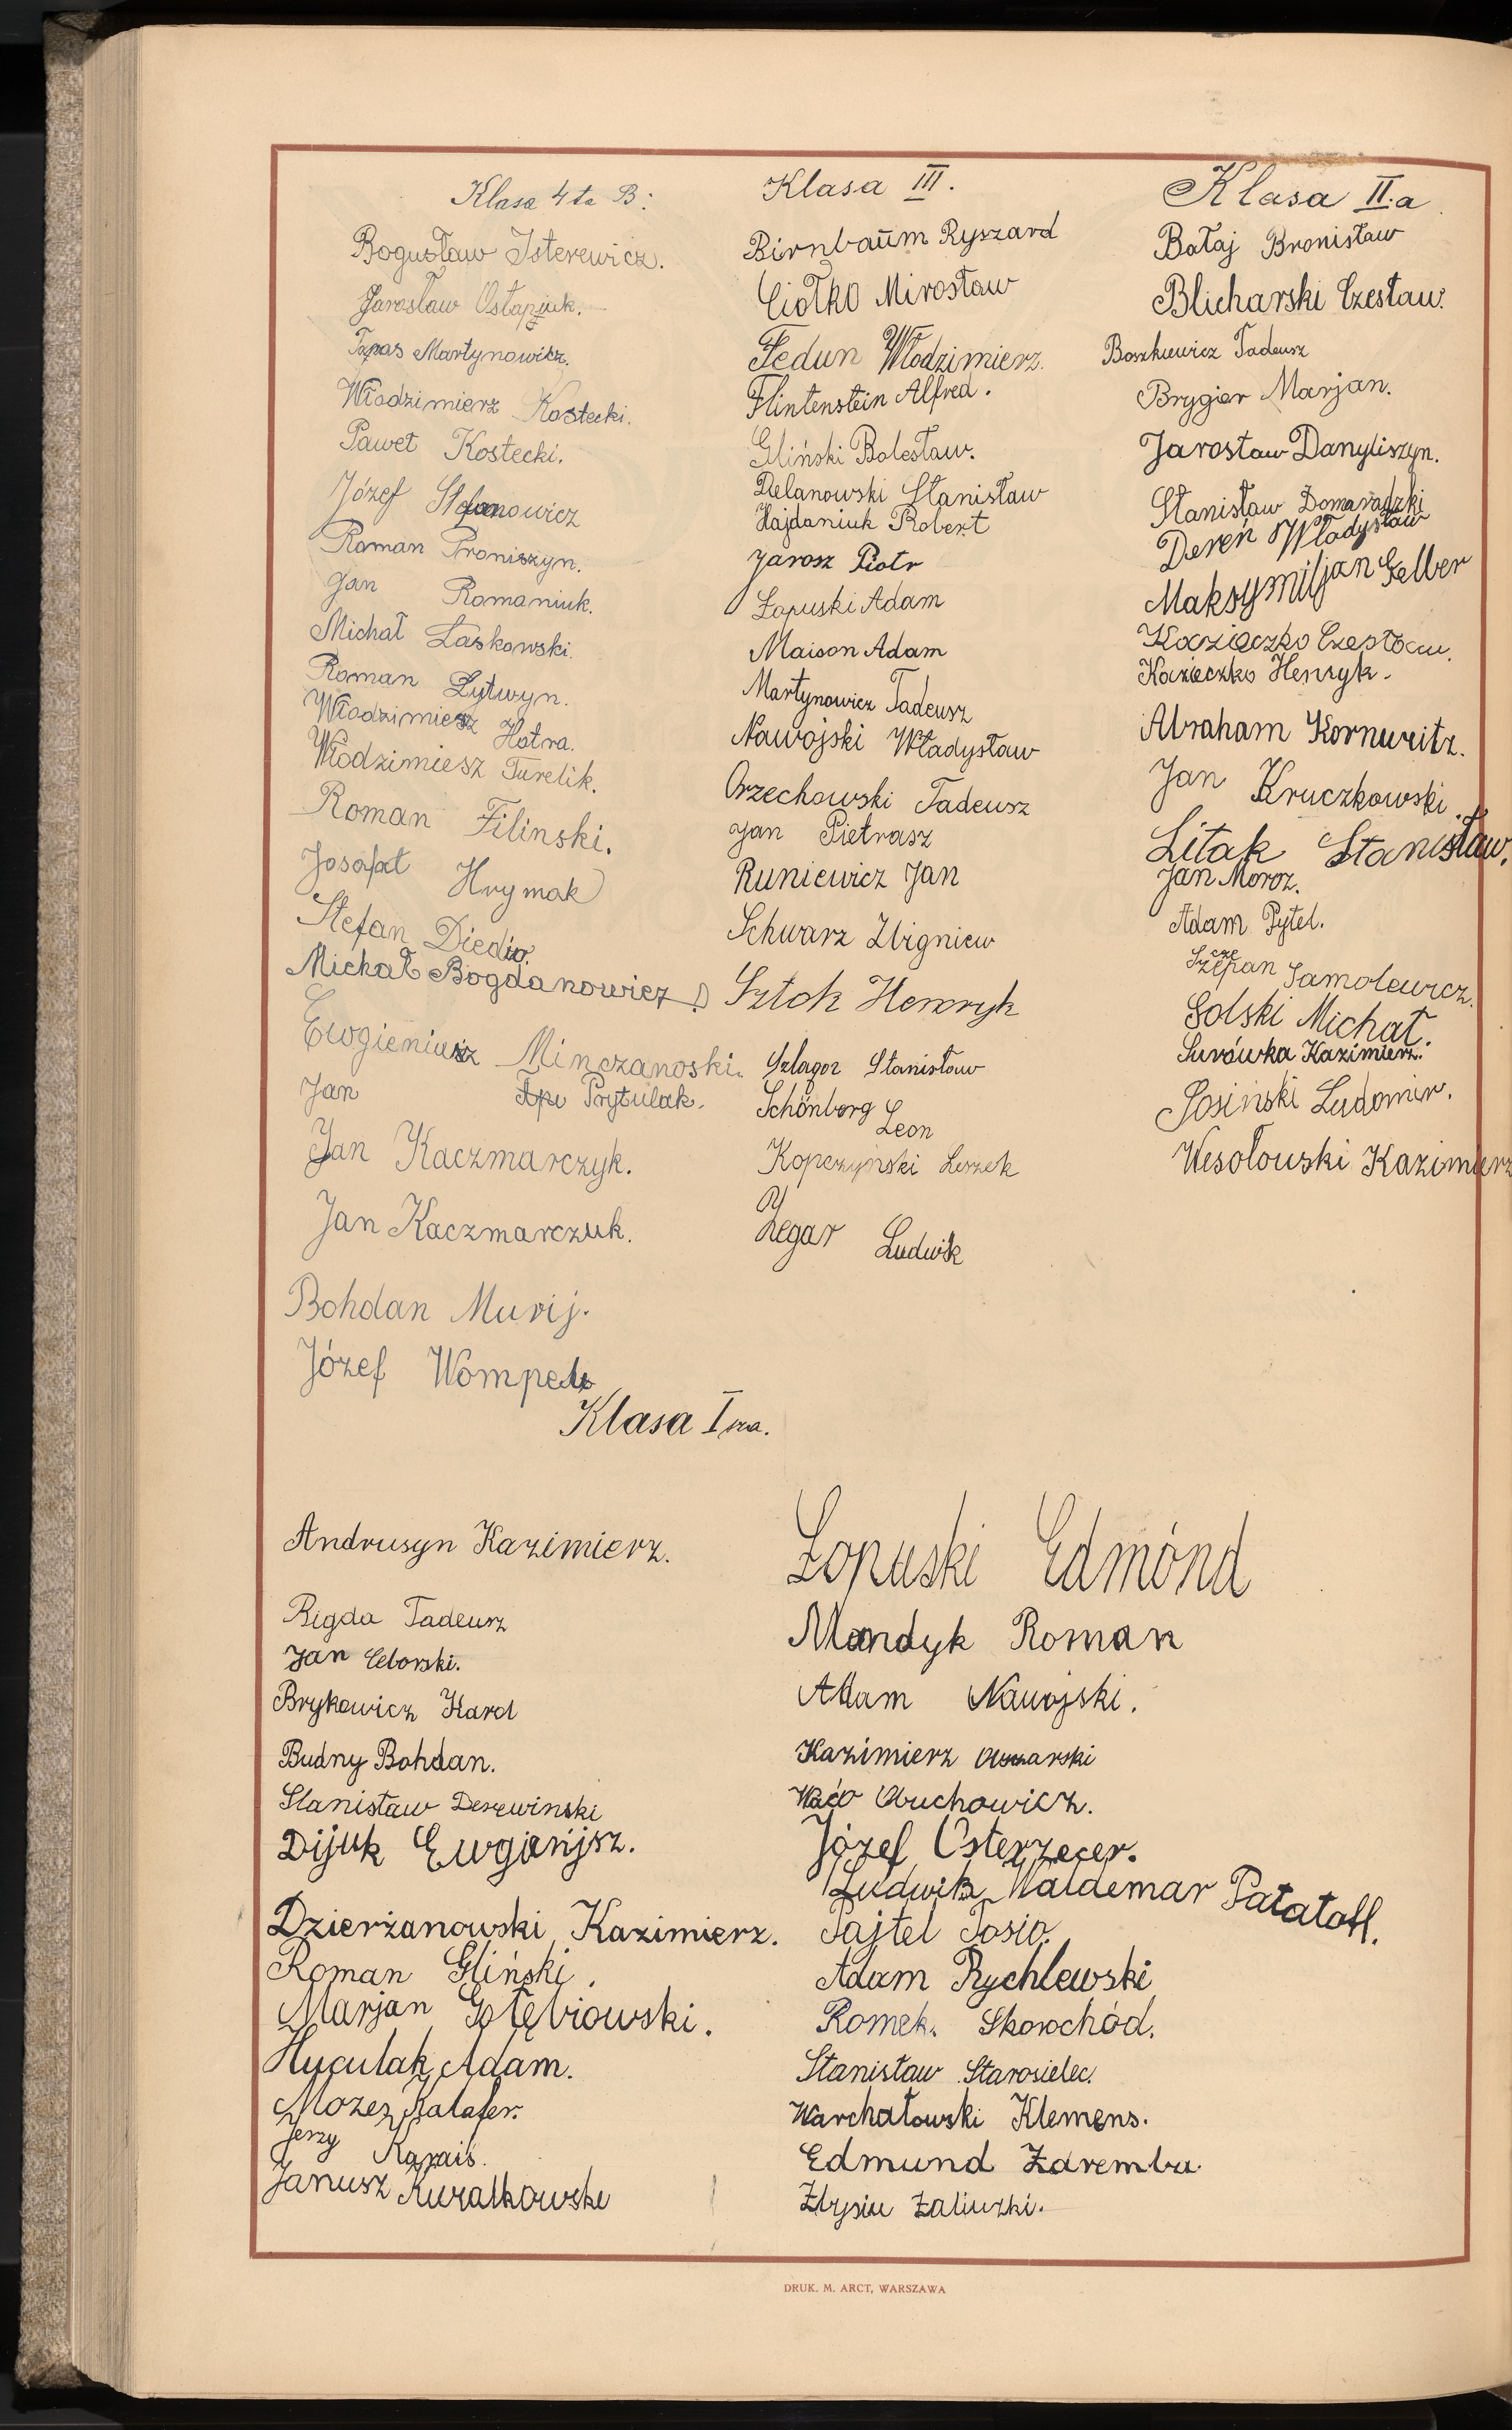 Klasa 4ta B:
Bogusław Isterewicz.
Jarosław Ostapiuk.
Taras Martynowicz.
Włodzimierz Kostecki.
Paweł Kostecki.
Józef Stefanowicz
Roman Proniszyn.
Jan Romaniuk.
Michał Laskowski.
Roman Łytwyn.
Włodzimiesz Hotra.
Włodzimiesz Turelik.
Roman Filinski.
Josafat Hrymak
Stefan Diedio.
Michał Bogdanowicz
Ewgieniusz Minczanoski.
Jan Prytulak.
Jan Kaczmarczyk.
Jan Kaczmarczuk.
Bohdan Murij.
Józef
Klasa III.
Birnbaum Ryszard
Ciołko Mirosław
Fedun Włodzimierz.
Flintenstein Alfred.
Gliński Bolesław.
Delanowski Stanisław
Hajdaniuk Robert
Jarosz Piotr
Łopuski Adam
Maison Adam
Martynowicz Tadeusz
Nawojski Władysław
Orzechowski Tadeusz
Jan Pietrasz
Runiewicz Jan
Schwarz Zbigniew
Sztok Henryk
Szlagor Stanisław
Schönberg Leon
Kopczyński Leszek
Zegar Ludwik
Klasa II.a
Bałaj Bronisław
Blicharski Czesław.
Boszkiewicz Tadeusz
Brygier Marjan.
Jarosław Danyliszyn.
Stanisław Domaradzki
Dereń Władysław
Maksymiljan Gelber
Kozieczko Czesław.
Kozieczko Henryk.
Abraham Kornweitz.
Jan Kruczkowski.
Litak Stanisław.
Jan Moroz.
Adam Pytel.
Szczepan Samolewicz.
Solski Michał.
Surówka Kazimierz.
Sosiński Ludomir.
Wesołowski Kazimierz
Klasa I sza.
Andrusyn Kazimierz.
Bigda Tadeusz
Jan Cebrski.
Brykowicz Karol
Budny Bohdan.
Stanisław Derewinski
Dijuk Ewgienjsz.
Dzierżanowski Kazimierz.
Roman Gliński.
Marjan Gołębiowski.
Huculak Adam.
Mozes Kalafer.
Jerzy Karais.
Janusz Kurałkowski
Łopuski Edmónd
Mandyk Roman
Adam Nawojski.
Kazimierz
Obuchowicz.
Józef Osterzecer.
Ludwik Waldemar Patataff.
Pajtel Tosio.
Adam Rychlewski
Romek. Skorochód.
Stanisław Starosielec.
Warchałowski Klemens.
Edmund Zaremba
Zbysiu Zaliwski.
DRUK. M. ARCT, WARSZAWA